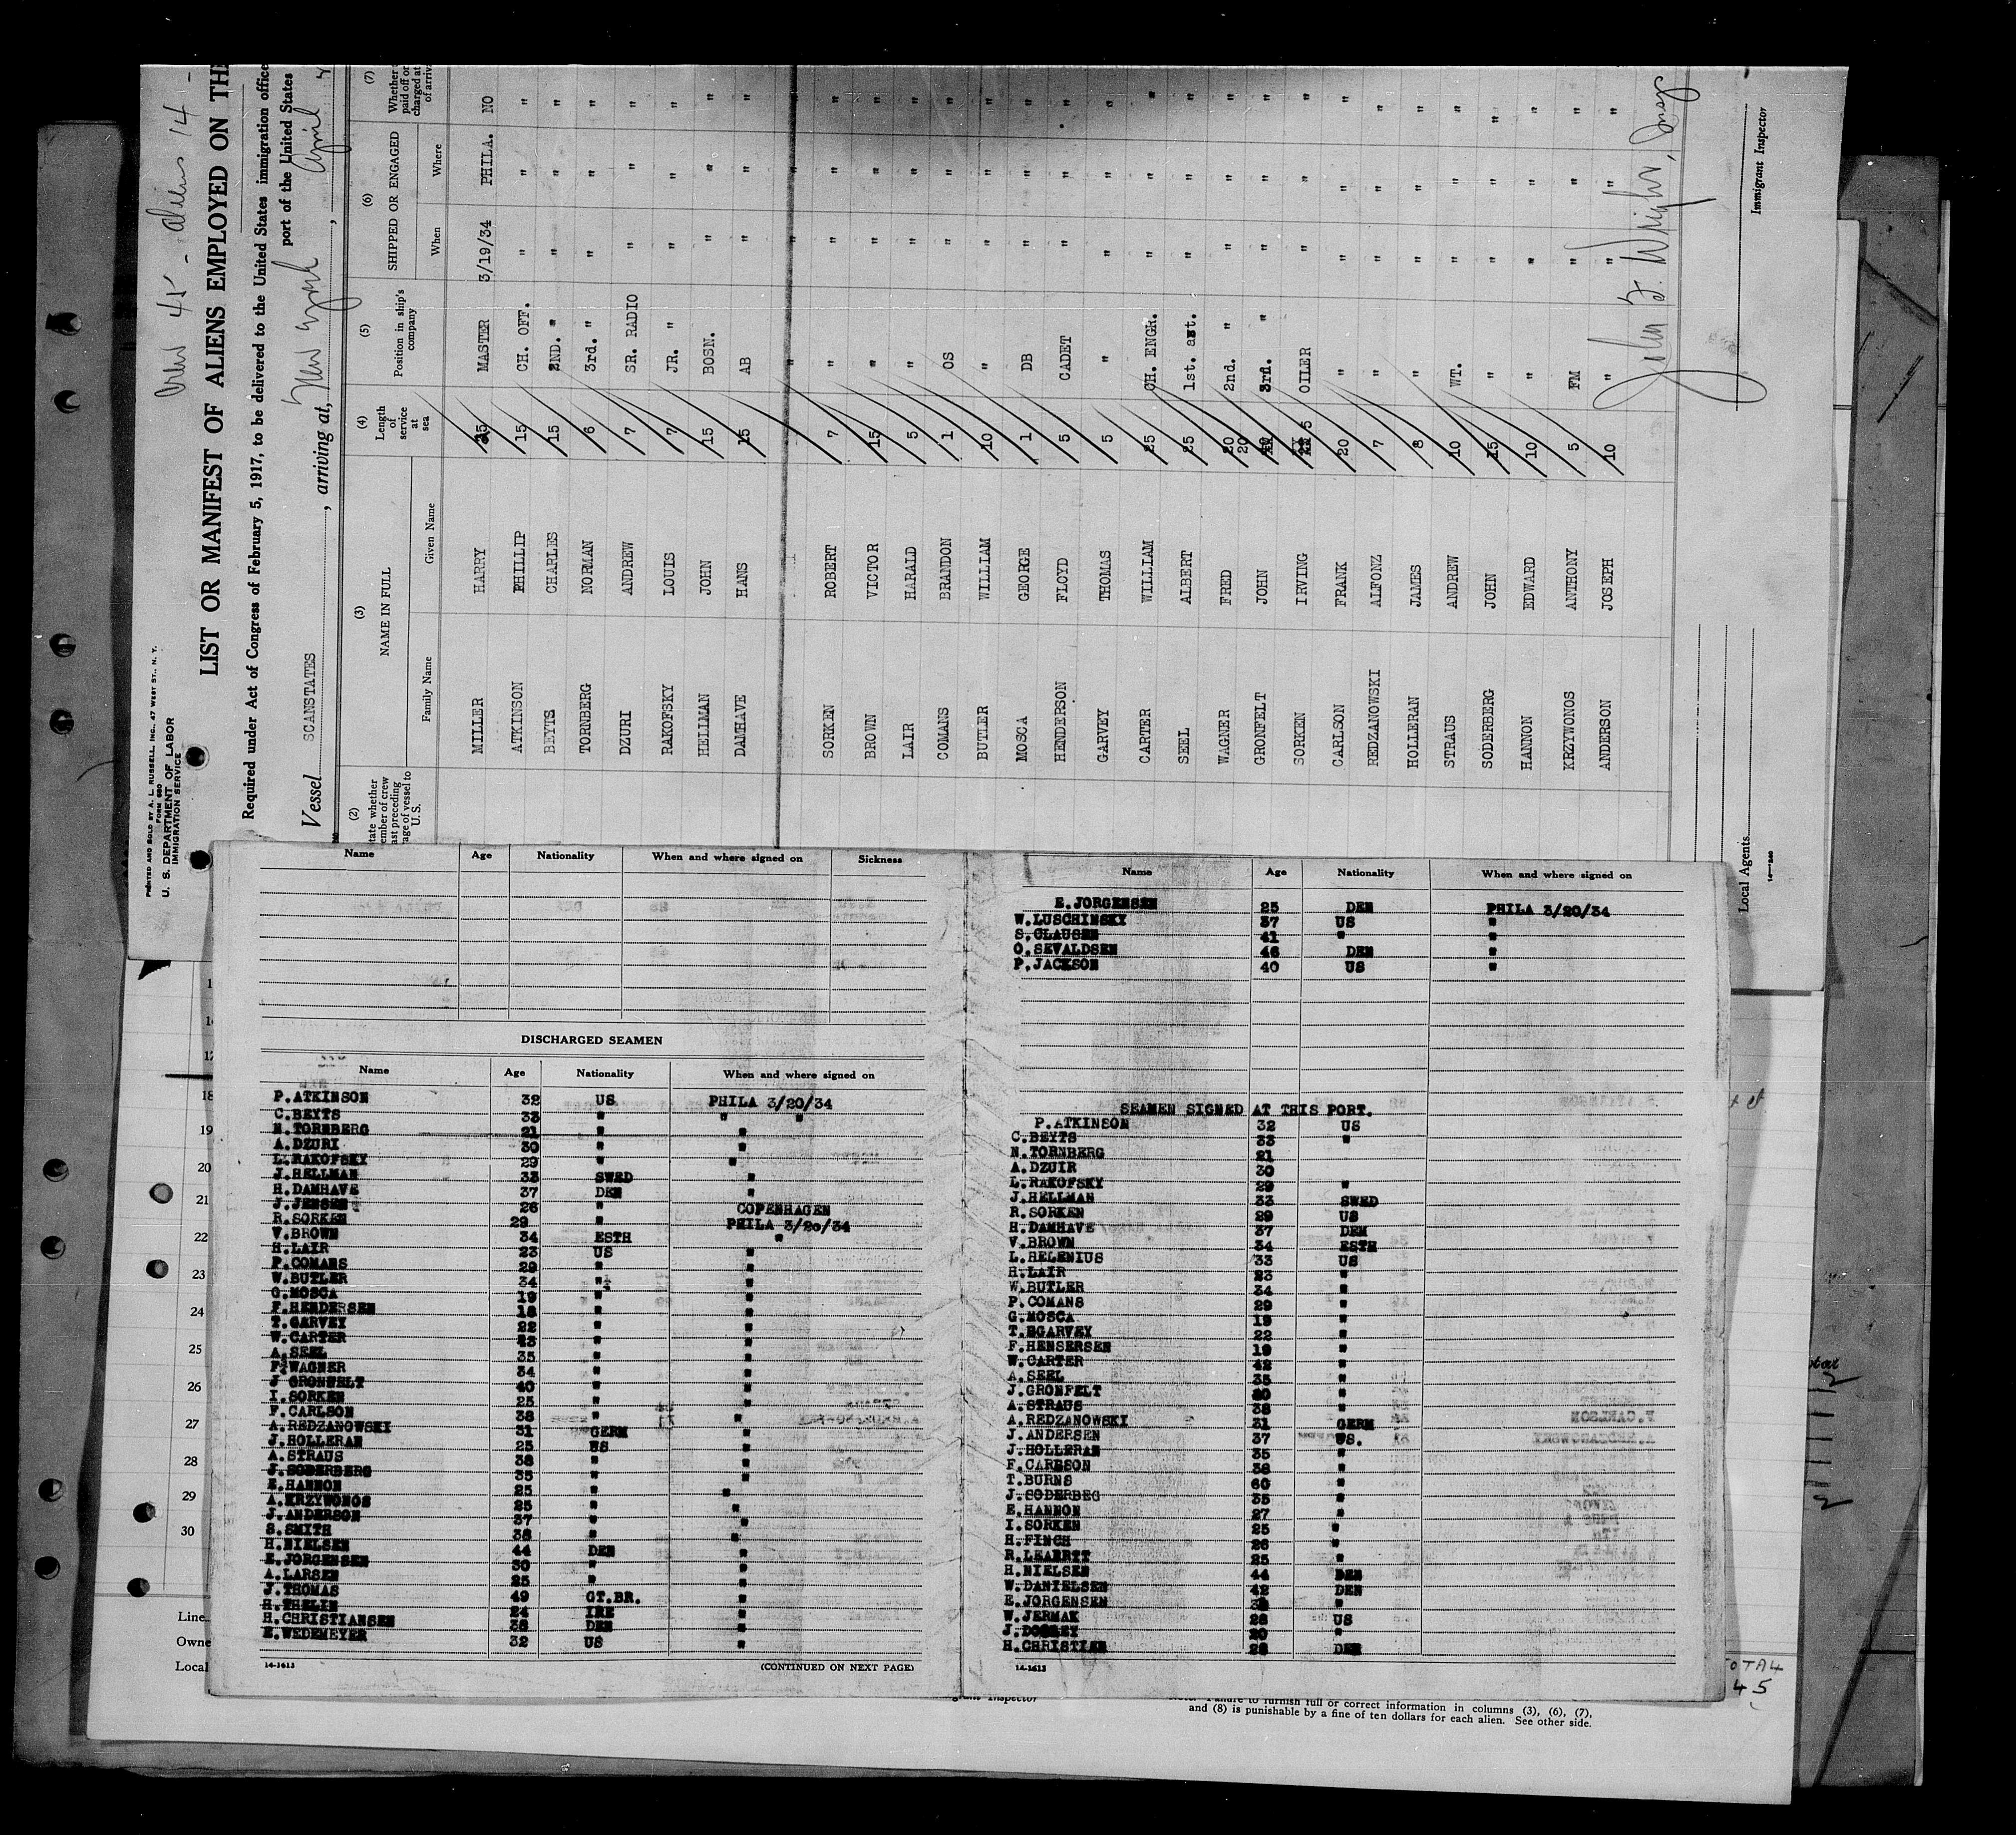 Crew 45 - aliens 14 -
PRINTED AND SOLD BY A. L. RUSSELL, INC., 47 WEST ST., N. Y.
FORM 680
U. S. DEPARTMENT OF LABOR
IMMIGRATION SERVICE
LIST OR MANIFEST OF ALIENS EMPLOYED ON TH
Required under Act of Congress of February 5, 1917, to be delivered to the United States immigration office
port of the United States
Vessel SCANSTATES, arriving at, New York, April
(2) (3) (4) (5) (6) (7)
tate whether
ember of crew
ast preceding
age of vessel to
U. S.
NAME IN FULL
Family Name Given Name
Length of service at sea
Position in ship's company
SHIPPED OR ENGAGED
When Where
Whether paid off or charged at of arriv
MILLER HARRY MASTER 3/19/34 PHILA. NO
ATKINSON PHILLIP 15 CH. OFF. " " "
BEYTS CHARLES 15 2ND. " " " "
TORNBERG NORMAN 6 3rd. " " " "
DZURI ANDREW 7 SR. RADIO " " "
RAKOFSKY LOUIS 7 JR. " " " "
HELLMAN JOHN 15 BOSN. " " "
DAMHAVE HANS 15 AB " " "
SORKEN ROBERT 7 " " " "
BROWN VICTOR 15 " " " "
LAIR HARALD 5 " " " "
COMANS BRANDON 1 OS " " "
BUTLER WILLIAM 10 " " " "
MOSCA GEORGE 1 DB " " "
HENDERSON FLOYD 5 CADET " " "
GARVEY THOMAS 5 " " " "
CARTER WILLIAM 25 CH. ENGR. " " "
SEEL ALBERT 25 1st. ast. " " "
WAGNER FRED 20 2nd. " " " "
GRONFELT JOHN 20 3rd. " " " "
SORKEN IRVING 5 OILER " " "
CARLSON FRANK 20 " " " "
REDZANOWSKI ALFONZ 7 " " " "
HOLLERAN JAMES 8 " " " "
STRAUS ANDREW 10 WT. " " "
SODERBERG JOHN 15 " " " "
HANNON EDWARD 10 " " " "
KRZYWONOS ANTHONY 5 FM " " "
ANDERSON JOSEPH 10 " " " "
John F. Wright,
Immigrant Inspector
Local Agents
Name Age Nationality When and where signed on Sickness
DISCHARGED SEAMEN
Name Age Nationality When and where signed on
P.ATKINSON 32 US PHILA 3/20/34
C.BEYTS 33 " " "
N.TORNBERG 21 " "
A.DZURI 30 " "
L.RAKOFSKY 29 " "
J.HELLMAN 33 SWED "
H.DAMHAVE 37 DEN "
J.JENSEN 26 " COPENHAGEN
R.SORKEN 29 " PHILA 3/20/34
V.BROWN 34 ESTH "
H.LAIR 23 US "
P.COMANS 29 " "
W.BUTLER 34 " "
G.MOSCA 19 " "
F.HENDERSEN 18 " "
T.GARVEY 22 " "
W.CARTER 43 " "
A.SEEL 35 " "
F.WAGNER 34 " "
J GRONFELT 40 " "
I.SORKEN 25 " "
F.CARLSON 38 " "
A.REDZANOWSKI 31 GERM "
J.HOLLERAN 25 US "
A.STRAUS 38 " "
J.SODERBERG 35 " "
E.HANNON 25 " "
A.KRZYWONOS 25 " "
J.ANDERSON 37 " "
S.SMITH 38 " "
H.NIELSEN 44 DEN "
E.JORGENSEN 30 " "
A.LARSEN 25 " "
J.THOMAS 49 GT.BR. "
H.THELIN 24 IRE "
H.CHRISTIANSEN 38 DEN "
E.WEDEMEYER 32 US "
14-1613 (CONTINUED ON NEXT PAGE)
Name Age Nationality When and where signed on
E.JORGENSEN 25 DEN PHILA 3/20/34
W.LUSCHINSKY 37 US "
S.CLAUSEN 41 " "
O.SEVALDSEN 46 DEN "
P.JACKSON 40 US "
SEAMEN SIGNED AT THIS PORT.
P.ATKINSON 32 US
C.BEYTS 33 "
N.TORNBERG 21
A.DZUIR 30
L.RAKOFSKY 29 "
J.HELLMAN 33 SWED
R.SORKEN 29 US
H.DAMHAVE 37 DEN
V.BROWN 34 ESTH
L.HELENIUS 33 US
H.LAIR 23 "
W.BUTLER 34 "
P.COMANS 29 "
G.MOSCA 19 "
T.EGARVEY 22 "
F.HENSERSEN 19 "
W.CARTER 42 "
A.SEEL 35 "
J.GRONFELT "
A.STRAUS 38 "
A.REDZANOWSKI 31 GERM
J.ANDERSEN 37 US.
J.HOLLERAN 35 "
F.CARLSON 38 "
T.BURNS 60 "
J.SODERBEG 35 "
E.HANNON 27 "
I.SORKEN 25 "
H.FINCH 26 "
R.LEARRTT 25 "
H.NIELSEN 44 DEN
W.DANIELSEN 42 DEN
E.JORGENSEN "
W.JERMAK 28 US
J. 20 "
H.CHRISTIAN DEN
14-1613
18
19
20
21
22
23
24
25
26
27
28
29
30
Line
Owne
Local
TOTAL
45
grant Inspector
Failure to furnish full or correct information in columns (3), (6), (7),
and (8) is punishable by a fine of ten dollars for each alien. See other side.